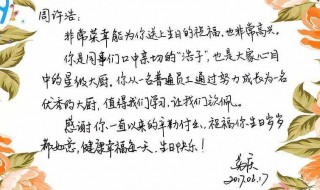 周许浩:
非常荣幸能为你送上生日的祝福,也非常高兴。
你是同事们口中亲切的“浩子”,也是大家心目
中的星级大厨。你从一名普通员工通过努力成长为一名
优秀的大厨,值得我们学习,让我们钦佩。
感谢你一直以来的辛勤付出,祝福你生日岁岁
都如意,健康幸福每一天,生日快乐!
2017.06.17